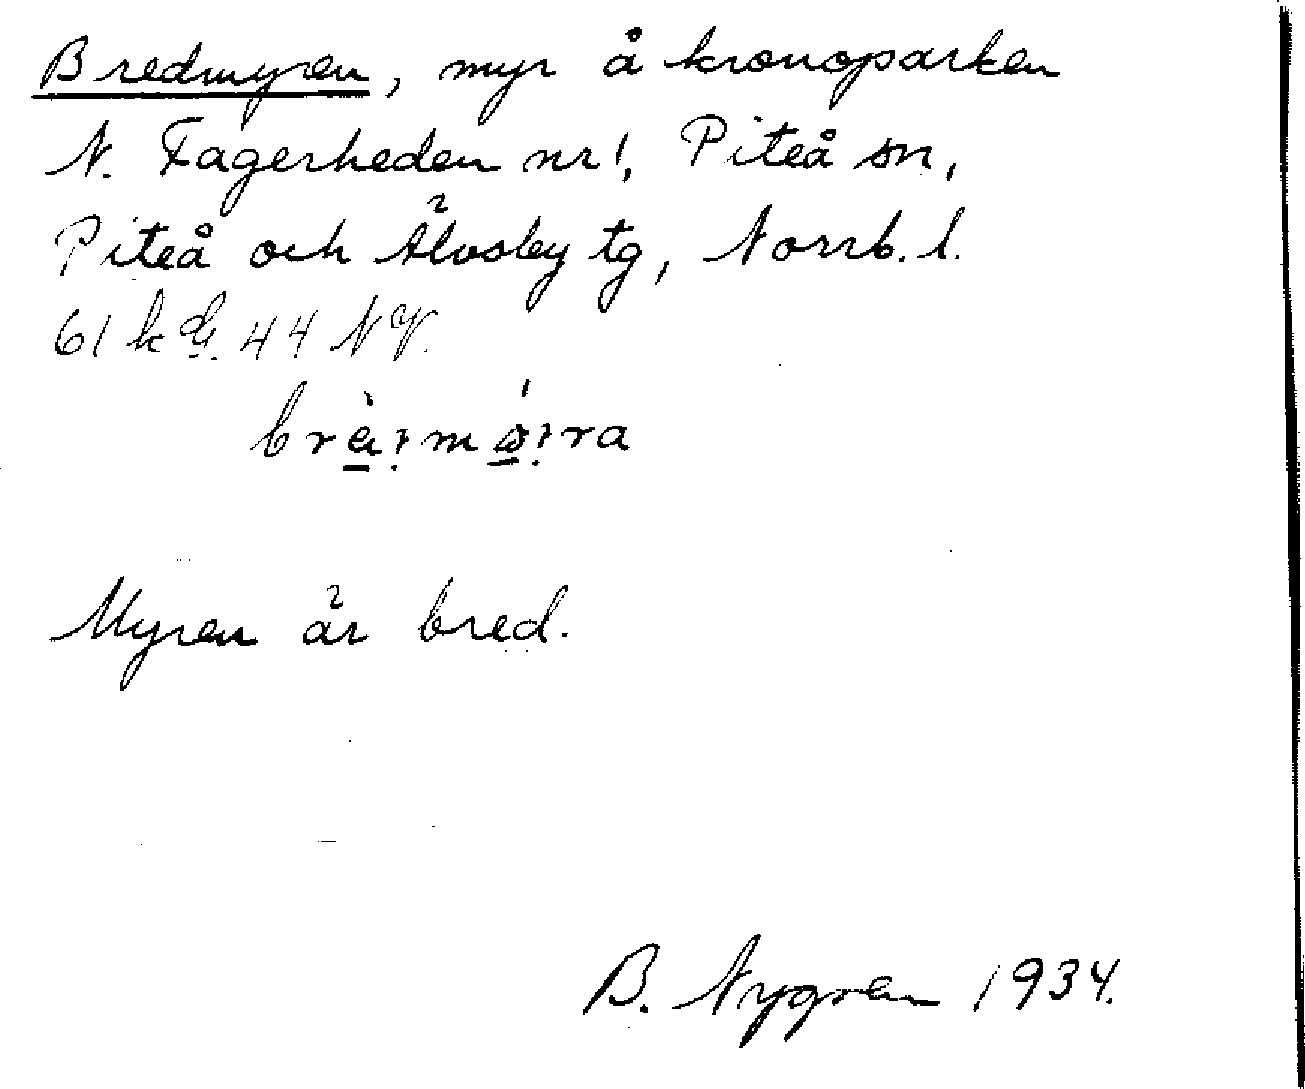 Bredmyren, myr å kronoparken
N. Fagerheden nr 1, Piteå sn,
Piteå och Älvsby tg, Norrb. l.
61 k 44 NV.
Myren är bred.
B. Nygren 1934.